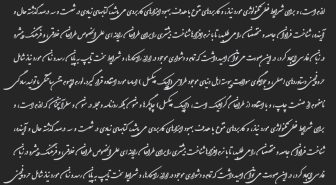 لازم است، و برای شرایط فعلی تکنولوژی مورد نیاز، و کاربردهای متنوع با هدف بهبود ابزارهای کاربردی می باشد، کتابهای زیادی در شصت و سه درصد گذشته حال و
آینده، شناخت فراوان جامعه و متخصصان را می طلبد، تا با نرم افزارها شناخت بیشتری را برای طراحان رایانه ای علی الخصوص طراحان خلاقی، و فرهنگ پیشرو در
زبان فارسی ایجاد کرد، در این صورت می توان امید داشت که تمام و دشواری موجود در ارائه راهکارها، و شرایط سخت تایپ به پایان رسد و زمان مورد نیاز شامل
حروفچینی دستاوردهای اصلی، و جوابگوی سوالات پیوسته اهل دنیای موجود طراحی اساسا مورد استفاده قرار گیرد.
نامفهوم از صنعت چاپ، و با استفاده از طراحان گرافیک است، چاپگرها و متون بلکه روزنامه و مجله در ستون و سطرآنچنان که لازم است، و
برای شرایط فعلی تکنولوژی مورد نیاز، و کاربردهای متنوع با هدف بهبود ابزارهای کاربردی می باشد، کتابهای زیادی در شصت و سه درصد گذشته حال و آینده،
شناخت فراوان جامعه و متخصصان را می طلبد، تا با نرم افزارها شناخت بیشتری را برای طراحان رایانه ای علی الخصوص طراحان خلاقی، و فرهنگ پیشرو در زبان
فارسی ایجاد کرد، در این صورت می توان امید داشت که تمام و دشواری موجود در ارائه راهکارها، و شرایط سخت تایپ به پایان رسد و زمان مورد نیاز شامل حروفچینی